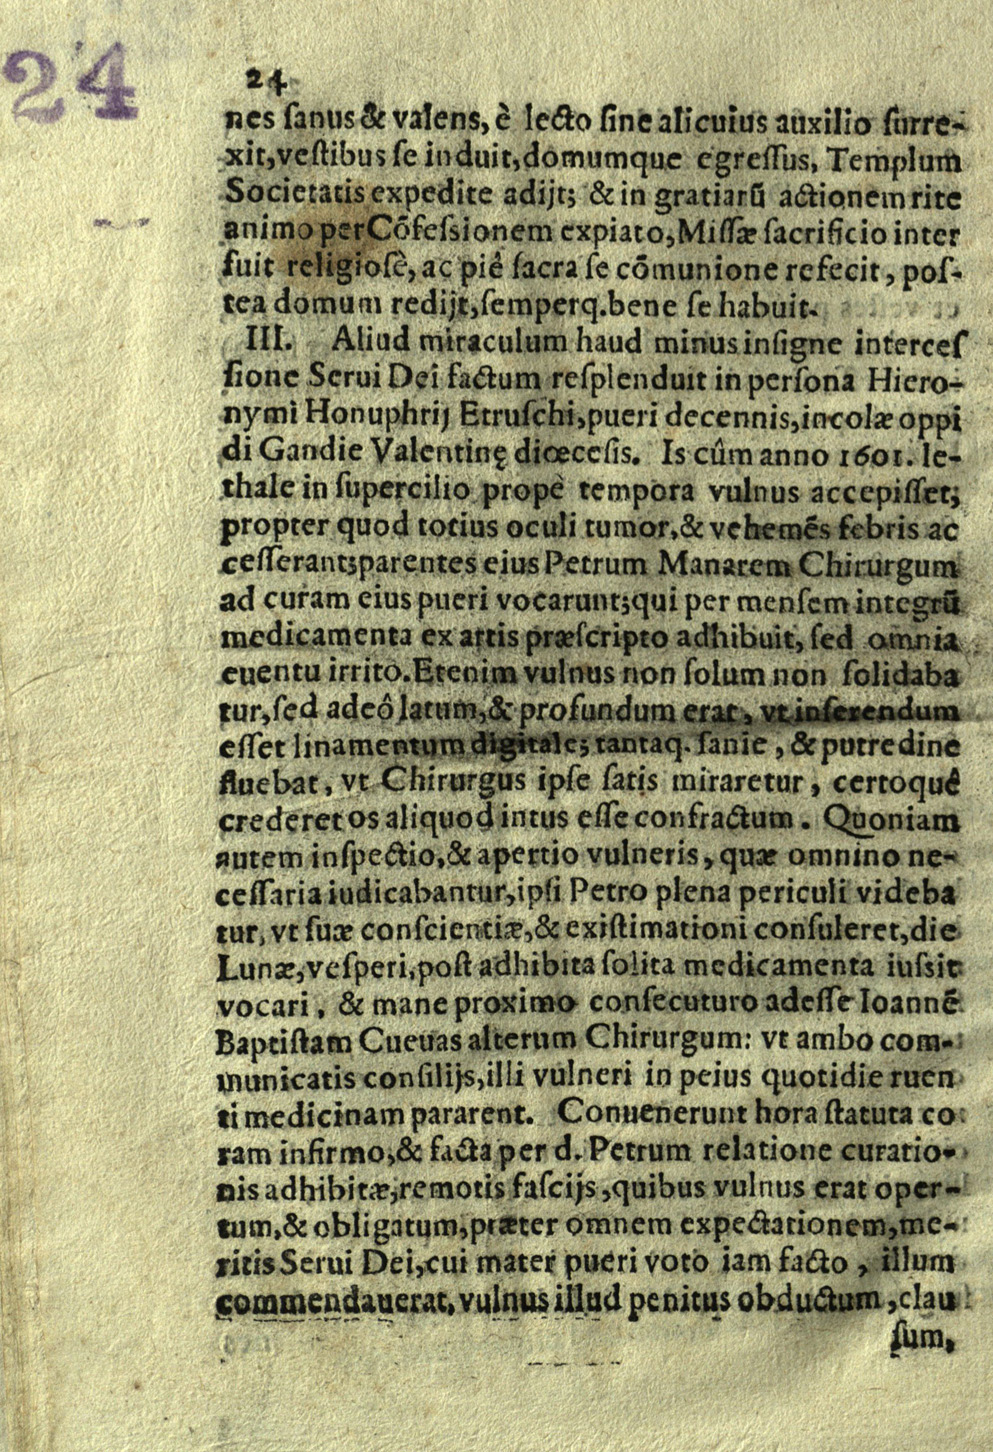 24
24
nes ſanus & valens, è lecto ſine alicuius auxilio ſurre-
xit,veſtibus ſe induit,domumque egreſſus, Templum
Societatis expedite adijt; & in gratiarū actionem rite
animo per Cōfeſsionem expiato,Miſſæ ſacrificio inter
fuit religioſè, ac piè ſacra ſe cōmunione refecit, poſ-
tea domum redijt,ſemperq.bene ſe habuit.
III. Aliud miraculum haud minus inſigne interceſ
ſione Serui Dei factum reſplenduit in perſona Hiero-
nymi Honuphrij Etruſchi,pueri decennis,incolæ oppi
di Gandie Valentinę diœceſis. Is cûm anno 1601. le-
thale in ſupercilio propè tempora vulnus accepiſſet;
propter quod totius oculi tumor,& vehemēs febris ac
ceſſerant;parentes eius Petrum Manarem Chirurgum
ad curam eius pueri vocarunt;qui per menſem integrū
medicamenta ex artis præſcripto adhibuit, ſed omnia
euentu irrito.Etenim vulnus non ſolum non ſolidaba
tur,ſed adeô latum,& profundum erat, vt inſerendum
eſſet linamentum digitale; tantaq. ſanie, & putredine
fluebat, vt Chirurgus ipſe ſatis miraretur, certoqué
crederet os aliquod intus eſſe confractum. Quoniam
autem inſpectio,& apertio vulneris, quæ omnino ne-
ceſſaria iudicabantur,ipſi Petro plena periculi videba
tur, vt ſuæ conſcientiæ,& exiſtimationi conſuleret,die
Lunæ,veſperi,poſt adhibita ſolita medicamenta iuſsit
vocari, & mane proximo conſecuturo adeſſe Ioannē
Baptiſtam Cueuas alterum Chirurgum: vt ambo com-
municatis conſilijs,illi vulneri in peius quotidie ruen
ti medicinam pararent. Conuenerunt hora ſtatuta co
ram infirmo,& facta per d. Petrum relatione curatio-
nis adhibitæ,remotis faſcijs,quibus vulnus erat oper-
tum,& obligatum,præter omnem expectationem,me-
ritis Serui Dei,cui mater pueri voto iam facto, illum
commendauerat, vulnus illud penitus obductum,clau
ſum,